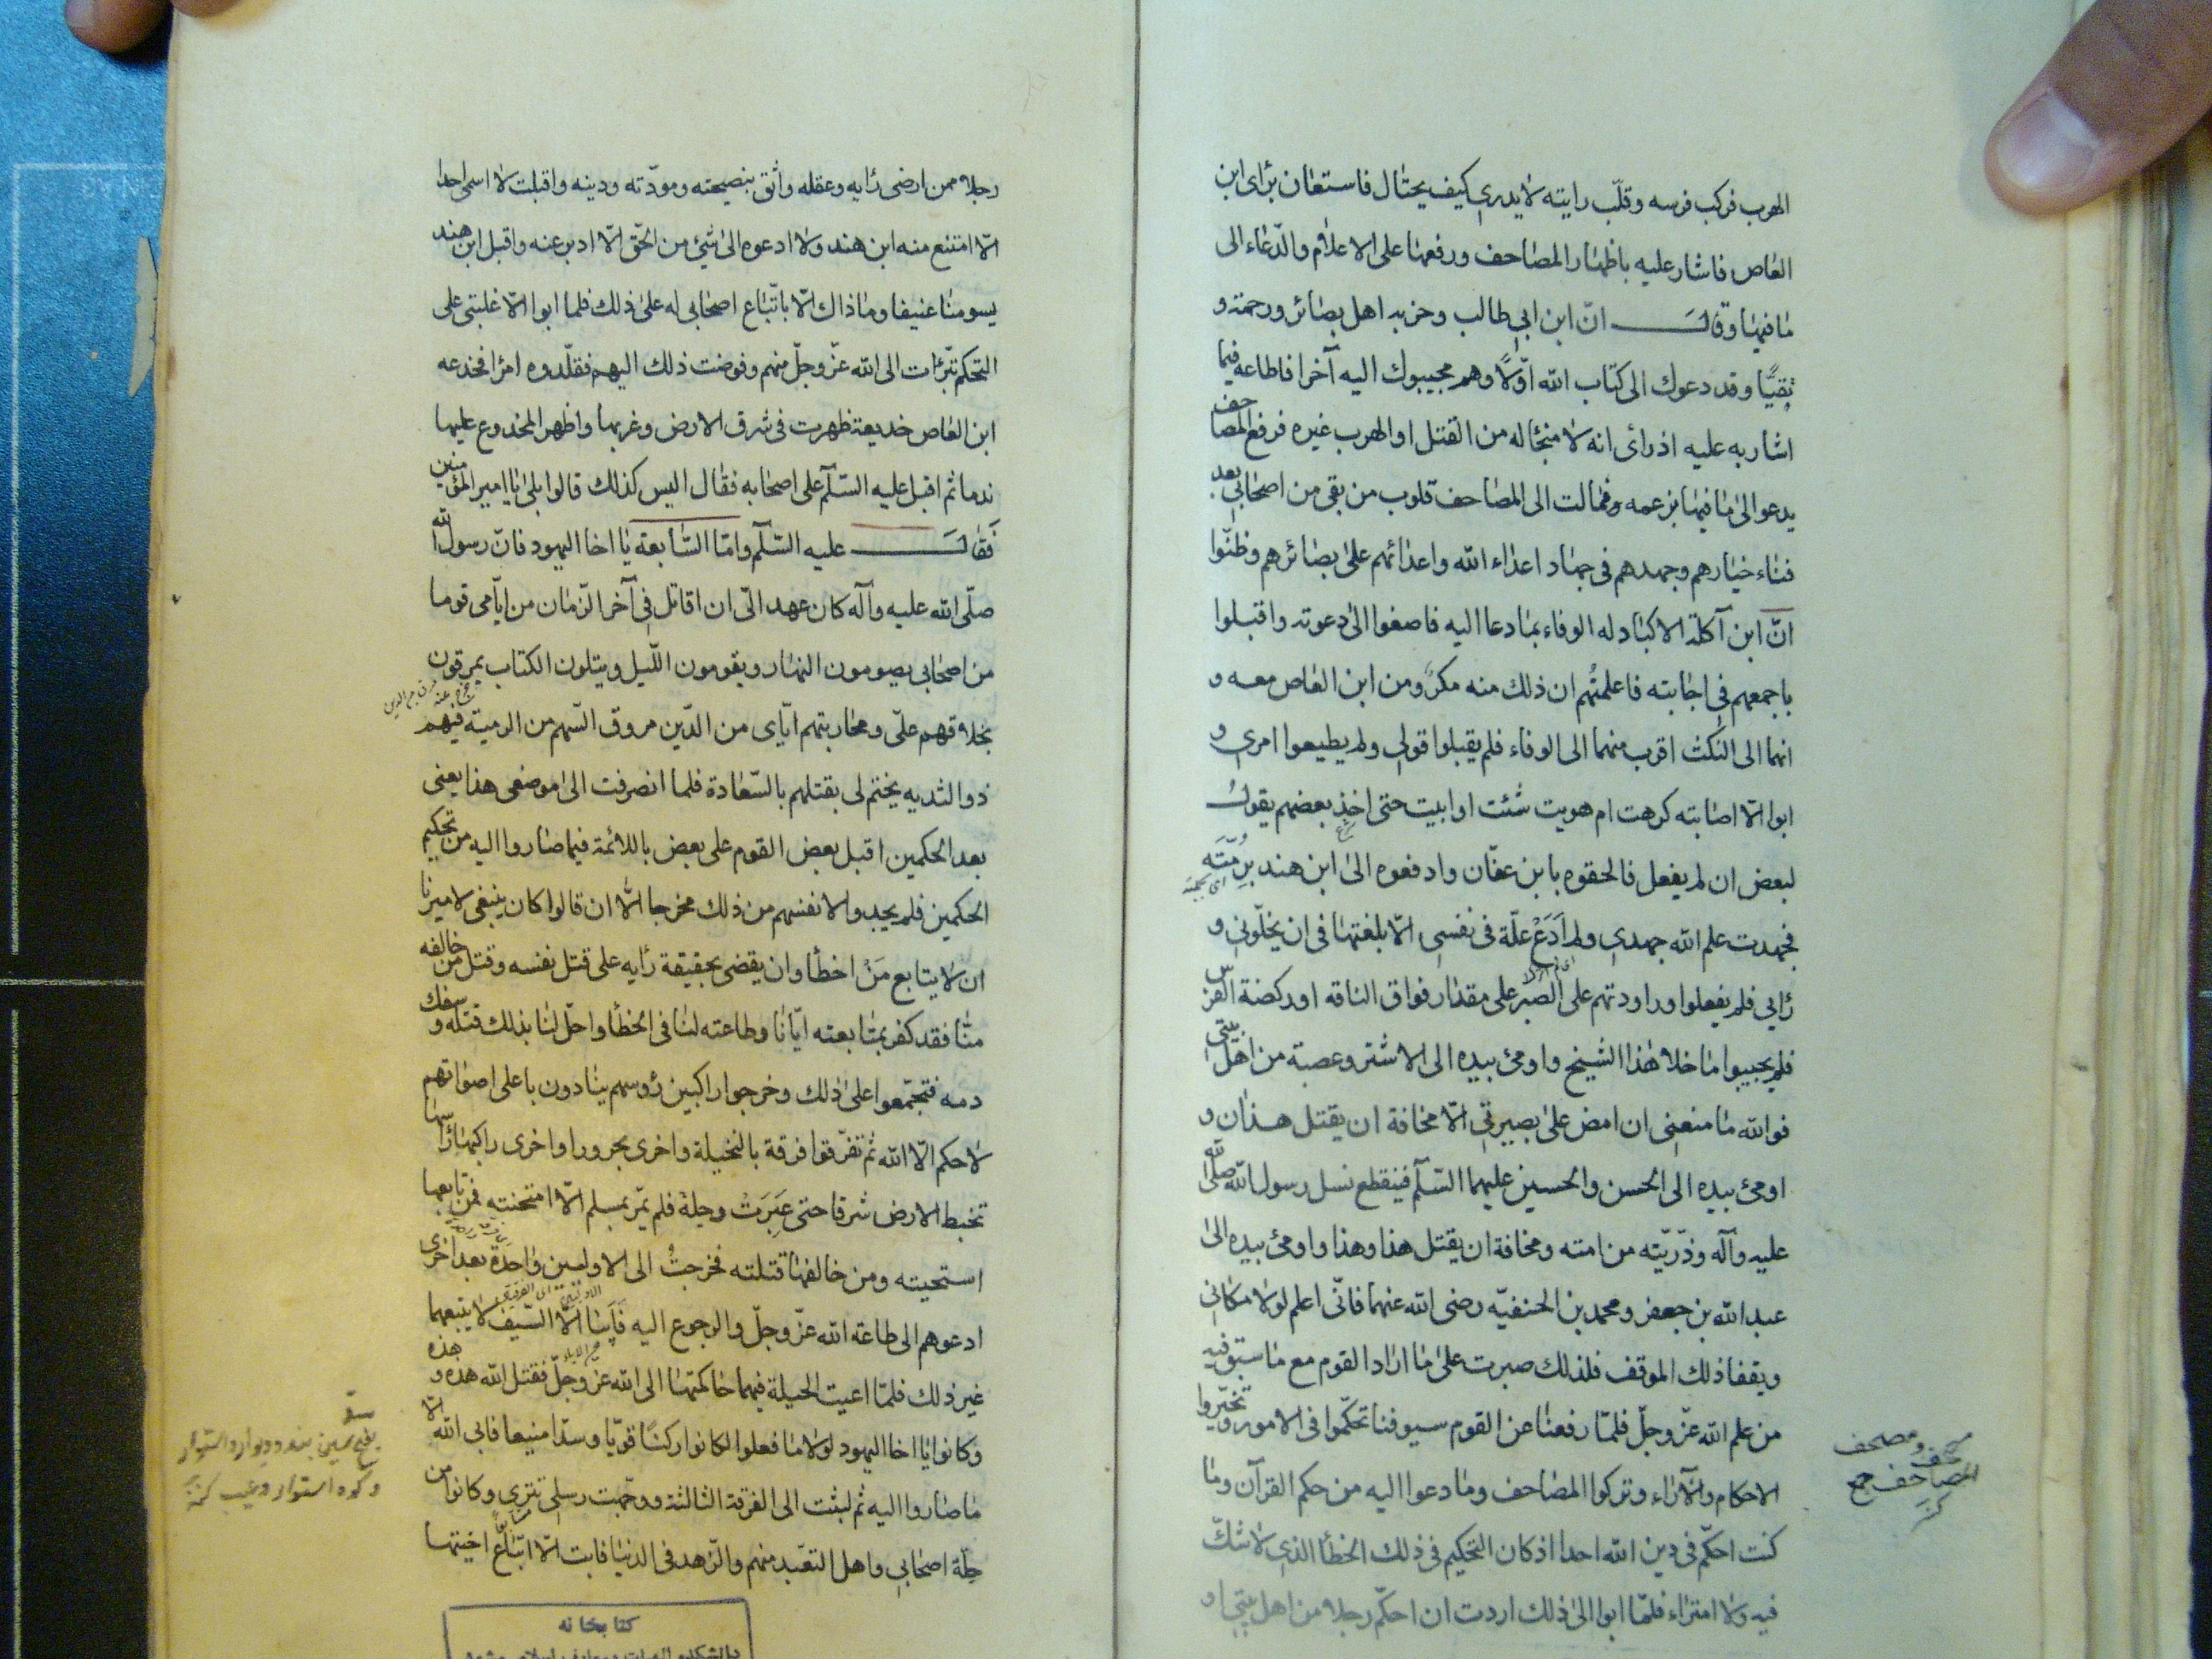 الهرب فركب فرسه وقلّب رايته لا يدري كيف يحتال فاستعان براى ابن
العاص فاشار عليه باظهار المصاحف ورفعها على الاعلام والدّعاء الى
ما فيها وقال انّ ابن ابي طالب وحزبه اهل بصائر ورحمة و
بقيّا وقد دعوك الى كتاب الله اوّلاً وهم مجيبوك اليه آخرا فاطاعه فيما
اشار به عليه اذ رأى انه لا منجا له من القتل او الهرب غيره فرفع المصاحف
يدعو الى ما فيها بزعمه فمالت الى المصاحف قلوب من بقى من اصحابي بعد
فناء خيارهم وجهدهم في جهاد اعداء الله واعدائهم على بصائرهم وظنّوا
انّ ابن آكلة الاكباد له الوفاء بما دعا اليه فاصغوا الى دعوته واقبلوا
باجمعهم في اجابته فاعلمتهم ان ذلك منه مكر ومن ابن العاص معه و
انهما الى النكث اقرب منهما الى الوفاء فلم يقبلوا قولي ولم يطيعوا امري و
ابوا الّا اصابته كرهت ام هويت شئت او ابيت حتى اخذ بعضهم يقول
لبعض ان لم يفعل فالحقوه بابن عفّان وادفعوه الى ابن هند برمّته
فجهدت علم الله جهدي ولم اَدَعْ علّة في نفسي الّا بلغتها في ان يخلّوني و
رأيي فلم يفعلوا وراودتهم على الصبر على مقدار فواق الناقه او ركضة الفرس
فلم يجيبوا ما خلا هذا الشيخ واومئ بيده الى الاشتر وعصبة من اهل بيتي
فوالله ما منعني ان امض على بصيرتي الّا مخافة ان يقتل هذان و
اومئ بيده الى الحسن والحسين عليهما السّلم فينقطع نسل رسول الله صلّى الله
عليه وآله وذرّيّته من امته ومخافة ان يقتل هذا وهذا واومئ بيده الى
عبد الله بن جعفر ومحمد بن الحنفيّه رضى الله عنهما فانّى اعلم لولا مكاني
ويقفا ذلك الموقف فلذلك صبرت على ما اراد القوم مع ما سبق فيه
من علم الله عزّ وجلّ فلمّا رفعنا عن القوم سيوفنا تحكّموا في الامور وتخيّروا
الاحكام والآراء وتركوا المصاحف وما دعوا اليه من حكم القرآن وما
كنت احكّم في دين الله احدا اذ كان التحكيم في ذلك الخطأ الذي لا شكّ
فيه ولا امتراء فلمّا ابوا الى ذلك اردت ان احكّم رجلا من اهل بيتي او
ومصحف
مصاحف جمع
كنز
رجلا ممن ارضى رأيه وعقله واثق بنصيحته ومودّته ودينه واقبلت لا اسمى احدا
الّا امتنع منه ابن هند ولا ادعوه الى شئ من الحّق الّا ادبر عنه واقبل ابن هند
يسومنا عنيفا وما ذاك الّا باتّباع اصحابي له على ذلك فلما ابوا الّا غلبتى على
التحكم تبرّئات الى الله عزّ وجلّ منهم وفوضت ذلك اليهم فقلّدوه امرًا فخدعه
ابن العاص خديعة ظهرت في شرق الارض وغربها واظهر المخدوع عليها
ندما ثم اقبل عليه السّلم على اصحابه فقال اليس كذلك قالوا بلى يا امير المؤمنين
فقال عليه السّلم وامّا السّابعة يا اخا اليهود فانّ رسول الله
صلّى الله عليه وآله كان عهد الىّ ان اقاتل في آخر الزمان من ايّامى قوما
من اصحابي يصومون النهار ويقومون اللّيل ويتلون الكتاب يمرقون
بخلافهم علىّ ومحاربتهم ايّاى من الدّين مروق السّهم من الرمية فيهم
ذو الثديه يختم لى بقتلهم بالسّعادة فلما انصرفت الى موضعى هذا يعنى
بعد الحكمين اقبل بعض القوم على بعض باللائمة فيما صاروا اليه من تحكيم
الحكمين فلم يجدوا لانفسهم من ذلك مخرجا الّا ان قالوا كان ينبغى لاميرنا
ان لا يتابع مَنْ اخطأ وان يقضى بحقيقة رأيه على قتل نفسه وقتل من خالفه
منّا فقد كفر بمتابعته ايّانا وطاعته لنا في الخطأ واحلّ لنا بذلك قتله وسفك
دمه فتجمّعوا على ذلك وخرجوا راكبين رؤسهم ينادون باعلى اصواتهم
لا حكم الّا الله ثم تفرّقوا فرقة بالنخيلة واخرى بحرورا واخرى راكبة رأسها
تخبط الارض شرقا حتى عَبَرَتْ دجلة فلم يمّر بمسلم الّا امتحنته فمن تابعها
استحيته ومن خالفها قتلته فخرجتُ الى الاوليين واحدة بعد اخرى
ادعوهم الى طاعة الله عزّ وجلّ والرجوع اليه فابيا الّا السّيف لا يتبعهما
غير ذلك فلمّا اعيت الحيلة فيهما حاكمتهما الى الله عزّ وجلّ فقتل الله هذه وهذه
وكانوا يا اخا اليهود لولا ما فعلوا لكانوا ركنًا قويّا وسدّا منيعا فابى الله الّا
ما صاروا اليه ثم لبثت الى الفرقة الثالثة ووجّهت رسلي تترى وكانوا من
جلّة اصحابي واهل التعّبد منهم والزهد في الدنيا فابت الّا اتباع اختيها
كتابخانه